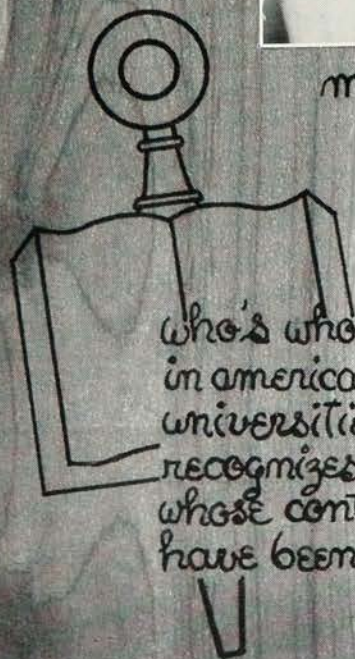 m
who's who
in america
universiti
recognizes
whose con
have been